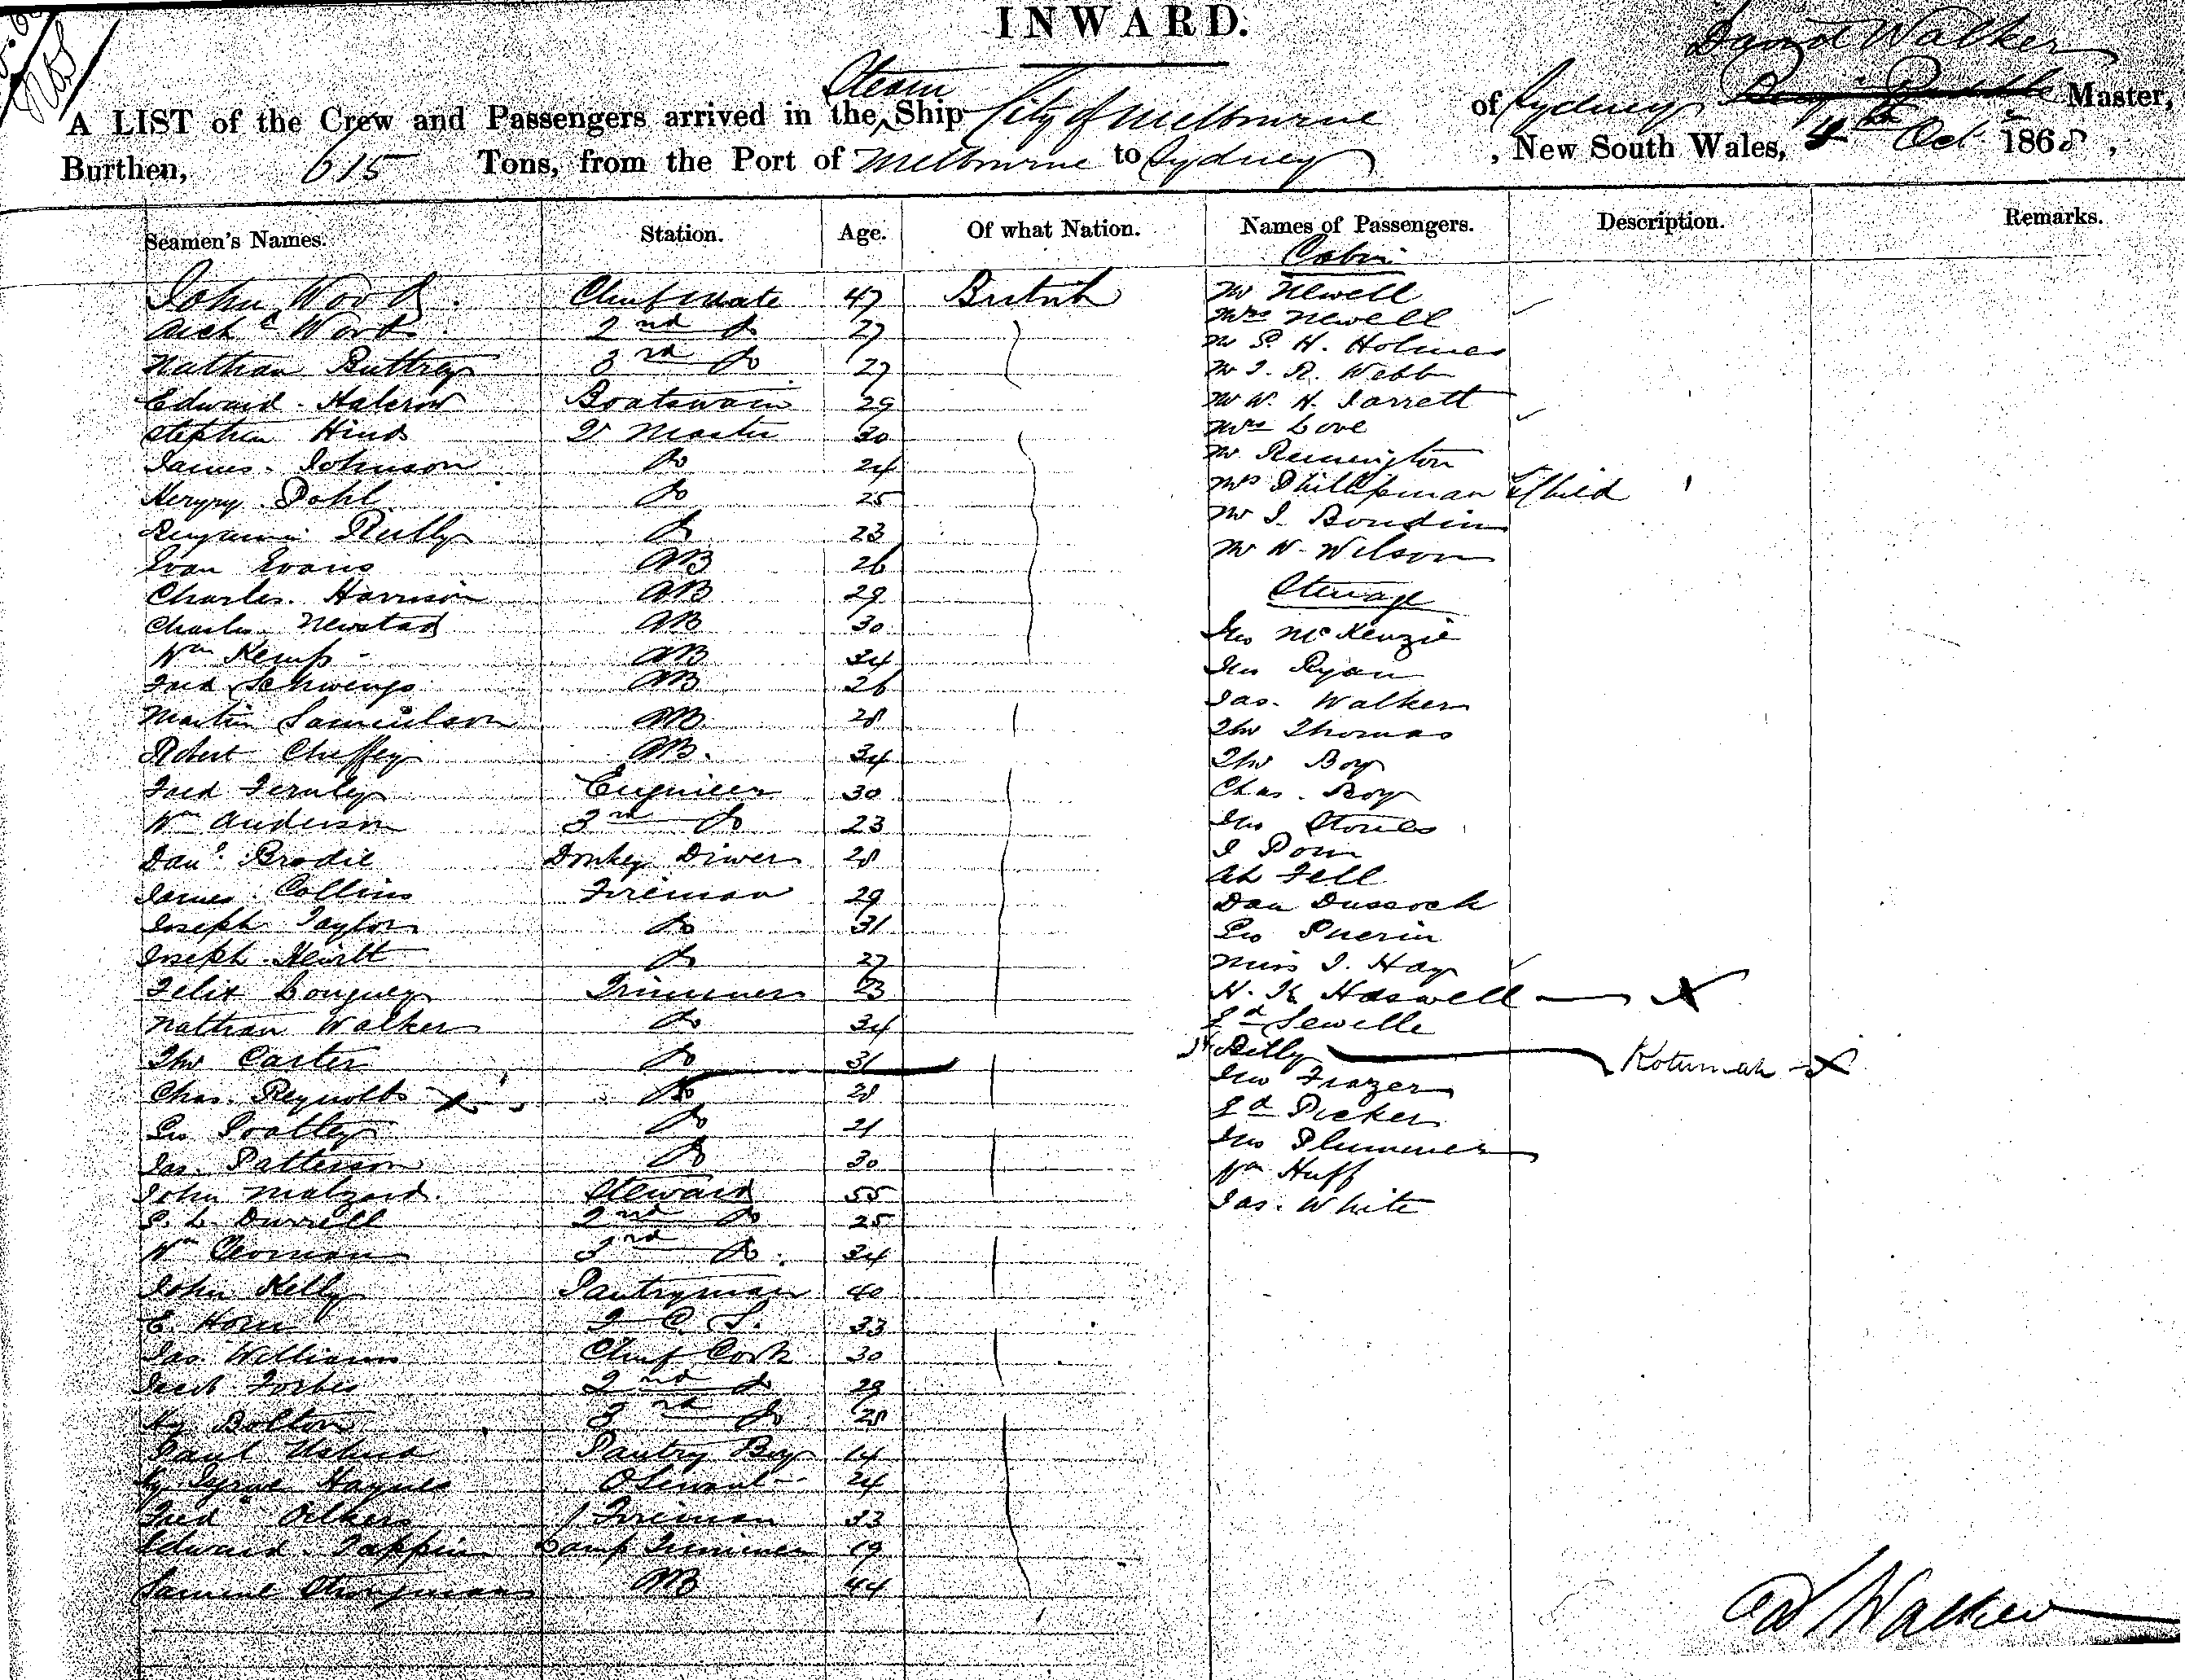 INWARD.
David Walker
A LIST of the Crew and Passengers arrived in the Steam Ship City of Melbourne of Sydney Master,
Burthen, 615 Tons, from the Port of Melbourne to Sydney, New South Wales, 4th Oct 1868,
Seamen's Names. Station. Age. Of what Nation. Names of Passengers. Description. Remarks.
John Wood Chief Mate 47 British
Archd Wood 2nd Do 27
Nathan Buttrey 3rd Do 27
Edward Halcrow Boatswain 29
Stephen Hind Qr Master 30
James Johnson Do 24
Pohl Do 25
Benjamin Reilly Do 23
Evan Evans AB 26
Charles Harrison AB 29
Charles Newstad AB 30
Wm Kemp AB 34
Fred Schwengs AB 26
Martin Samuelson AB 28
Robert Cheffey AB. 34
Fred Fernley Engineer 30
Wm Anderson 3rd Do 23
Danl Brodie Donkey Driver 28
James Collins Fireman 29
Joseph Taylor Do 31
Joseph Do 27
Felix Trimmer 23
Nathan Walker Do 34
Tho Carter Do 31
Chas. Reynolds Do 28
Geo Do 21
Jas. Patterson Do 30
John Malzard Steward 55
Durrell 2nd Do 25
Wm 3rd Do 34
John Kelly Pantryman 40
E. Horn 2 C. S. 33
Jas Williams Chief Cook 30
Jacob Forbes 2nd Do 29
Hy Bolton 3rd Do 28
Paul Pantry Boy 14
Hy Haynes 24
Fred Fireman 33
Edward Tappin Lamp Trimmer 19
Samuel AB 44
Cabin
Mr Newell
Mrs Newell
Mr S. H. Holmes
Mr J. R. Webb
Mr W. H. Jarrett
Mrs Love
Mr Remington
Mrs Phillipman & Child
Mr J. Boudin
Mr W. Wilson
Steerage
Jno McKenzie
Jno Ryan
Jas. Walker
Tho Thomas
Tho Boy
Chas. Boy
Jno Stones
J Poun
Ah Fell
Dan Dussock
Geo Puerin
Miss J. Hay
H. K Haswell X
Sewelle
Billy Kotumah X
Jno Frazer
Picker
Jno Plummer
Wm Huff
Jas. White
Walker